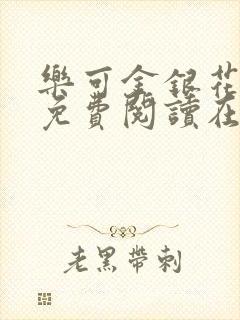 樂可金銀花
免費閱讀在
老黑帶刺